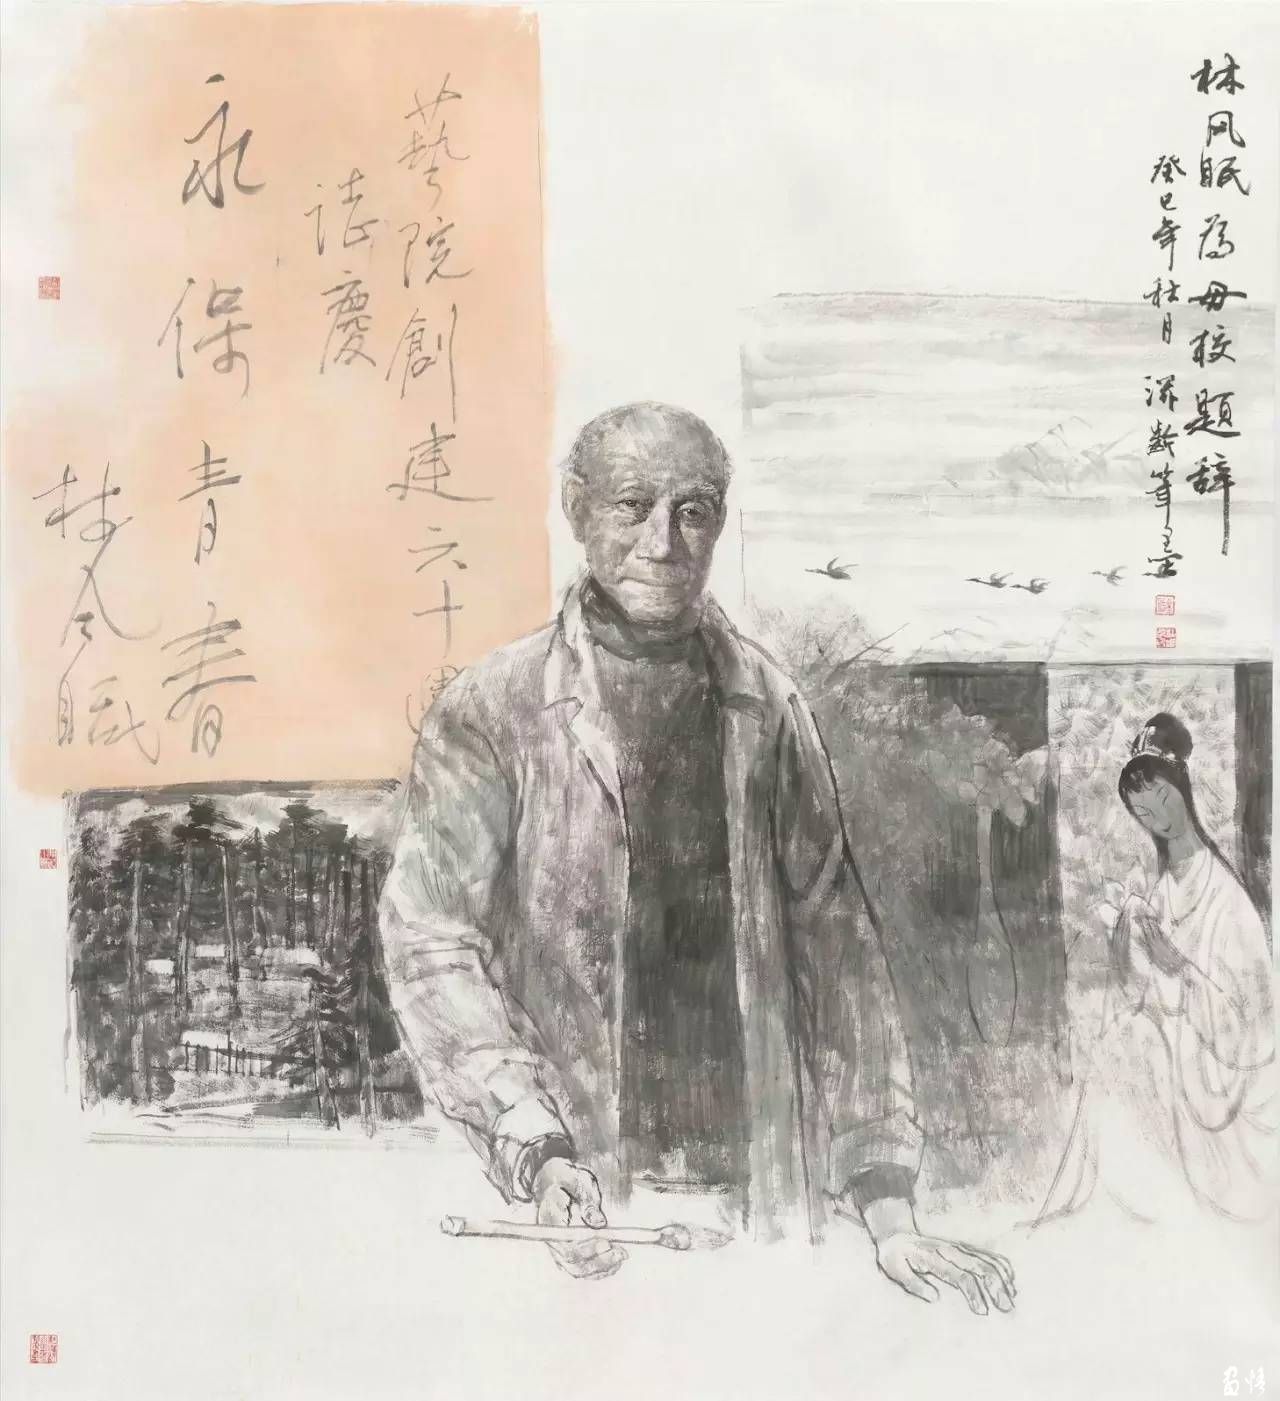 林风眠為母校題辭
癸巳年秋月 齡筆墨
藝院創建六十
誌慶
永保青春
林风眠